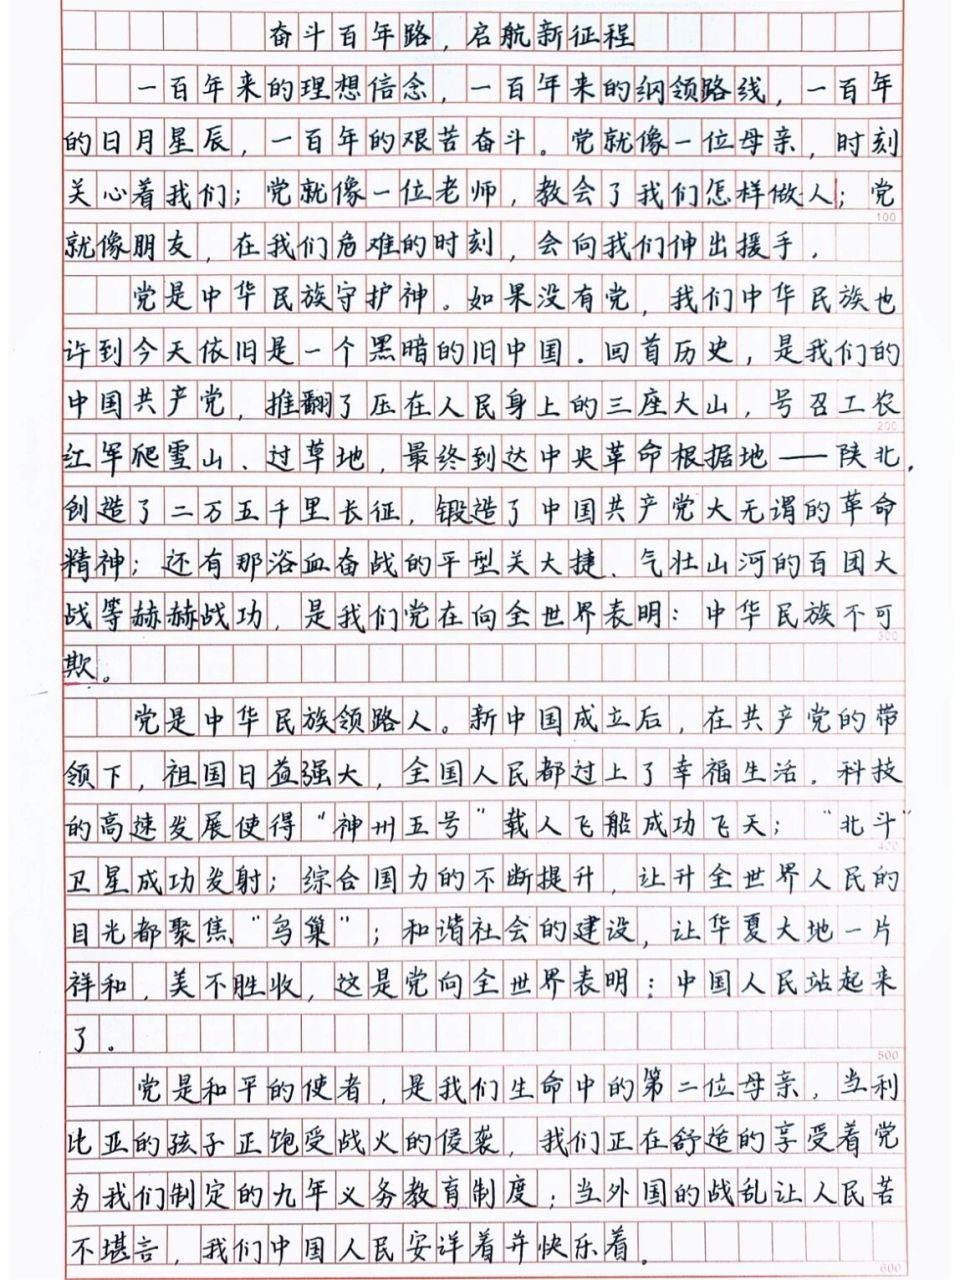 奋斗百年路，启航新征程
一百年来的理想信念，一百年来的纲领路线，一百年
的日月星辰，一百年的艰苦奋斗。党就像一位母亲，时刻
关心着我们；党就像一位老师，教会了我们怎样做人；党
100
就像朋友，在我们危难的时刻，会向我们伸出援手．
党是中华民族守护神。如果没有党，我们中华民族也
许到今天依旧是一个黑暗的旧中国．回首历史，是我们的
中国共产党，推翻了压在人民身上的三座大山，号召工农
200
红军爬雪山、过草地，最终到达中央革命根据地——陕北，
创造了二万五千里长征，锻造了中国共产党大无谓的革命
精神；还有那浴血奋战的平型关大捷、气壮山河的百团大
战等赫赫战功，是我们党在向全世界表明：中华民族不可
300
欺。
党是中华民族领路人。新中国成立后，在共产党的带
领下，祖国日益强大，全国人民都过上了幸福生活．科技
的高速发展使得“神州五号”载人飞船成功飞天；“北斗”
400
卫星成功发射；综合国力的不断提升，让升全世界人民的
目光都聚焦“鸟巢”；和谐社会的建设，让华夏大地一片
祥和，美不胜收，这是党向全世界表明：中国人民站起来
了。
500
党是和平的使者，是我们生命中的第二位母亲，当利
比亚的孩子正饱受战火的侵袭，我们正在舒适的享受着党
为我们制定的九年义务教育制度；当外国的战乱让人民苦
不堪言，我们中国人民安详着并快乐着．
600